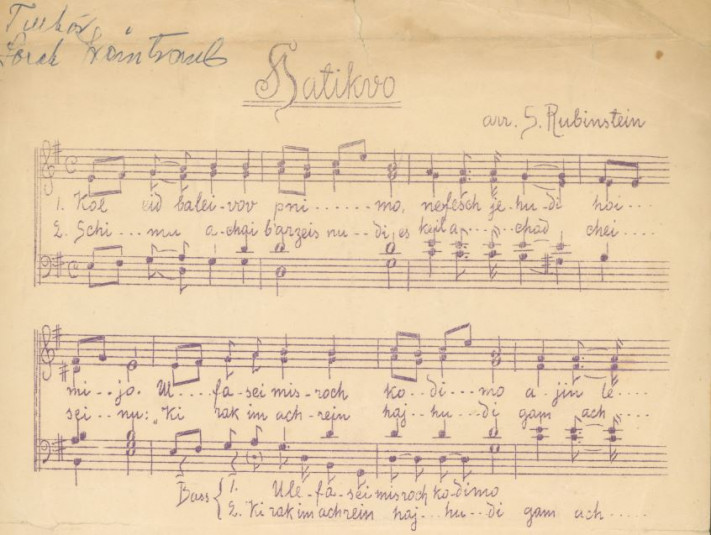 Hatikvo
arr. S. Rubinstein
1. Kol eid balei-vov pni......mo, nefesch je-hu-di hoi....
2. Schi...mu a-chai b'arzeis nu--di, es kojl a...chad chei....
mi..jo. Ul....fa-sei mis-roch ko..di...mo a-jin le....
sei..nu: "Ki rak im ach-rein haj--hu...di gam ach.....
Bass { 1. Ule-fa-sei misroch kodimo
2. "Ki rak im achrein haj..hu..di gam ach.....